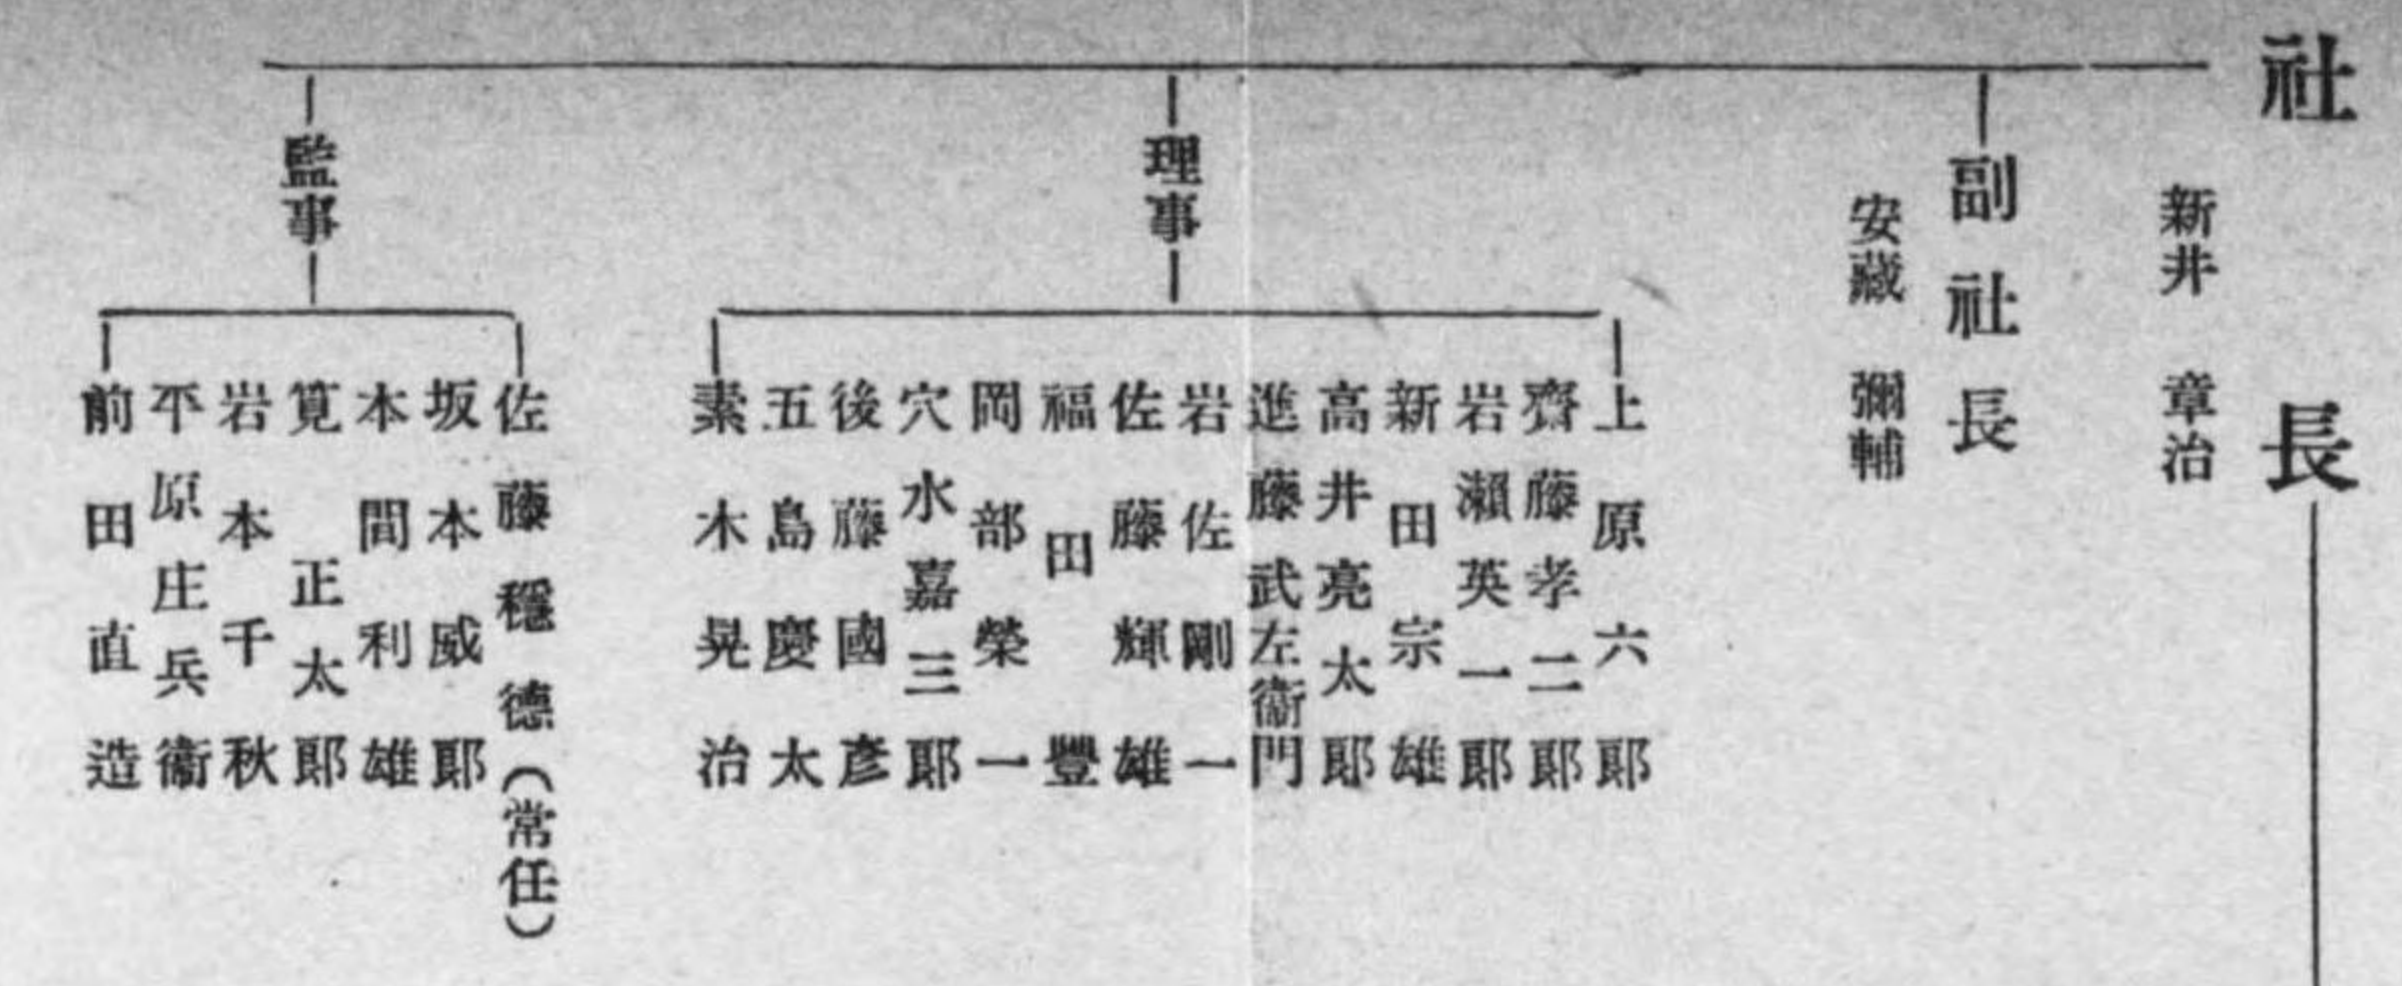 社長
新井 章治
副社長
安藏 彌輔
理事
上原六郎
齋藤孝二郎
岩瀨英一郎
新田宗雄
高井亮太郎
進藤武左衞門
岩佐剛一
佐藤輝雄
福田豐
岡部榮一
穴水嘉三郎
後藤國彦
五島慶太
素木晃治
監事
佐藤穩德(常任)
坂本威郎
本間利雄
筧正太郎
岩本千秋
平原庄兵衞
前田直造